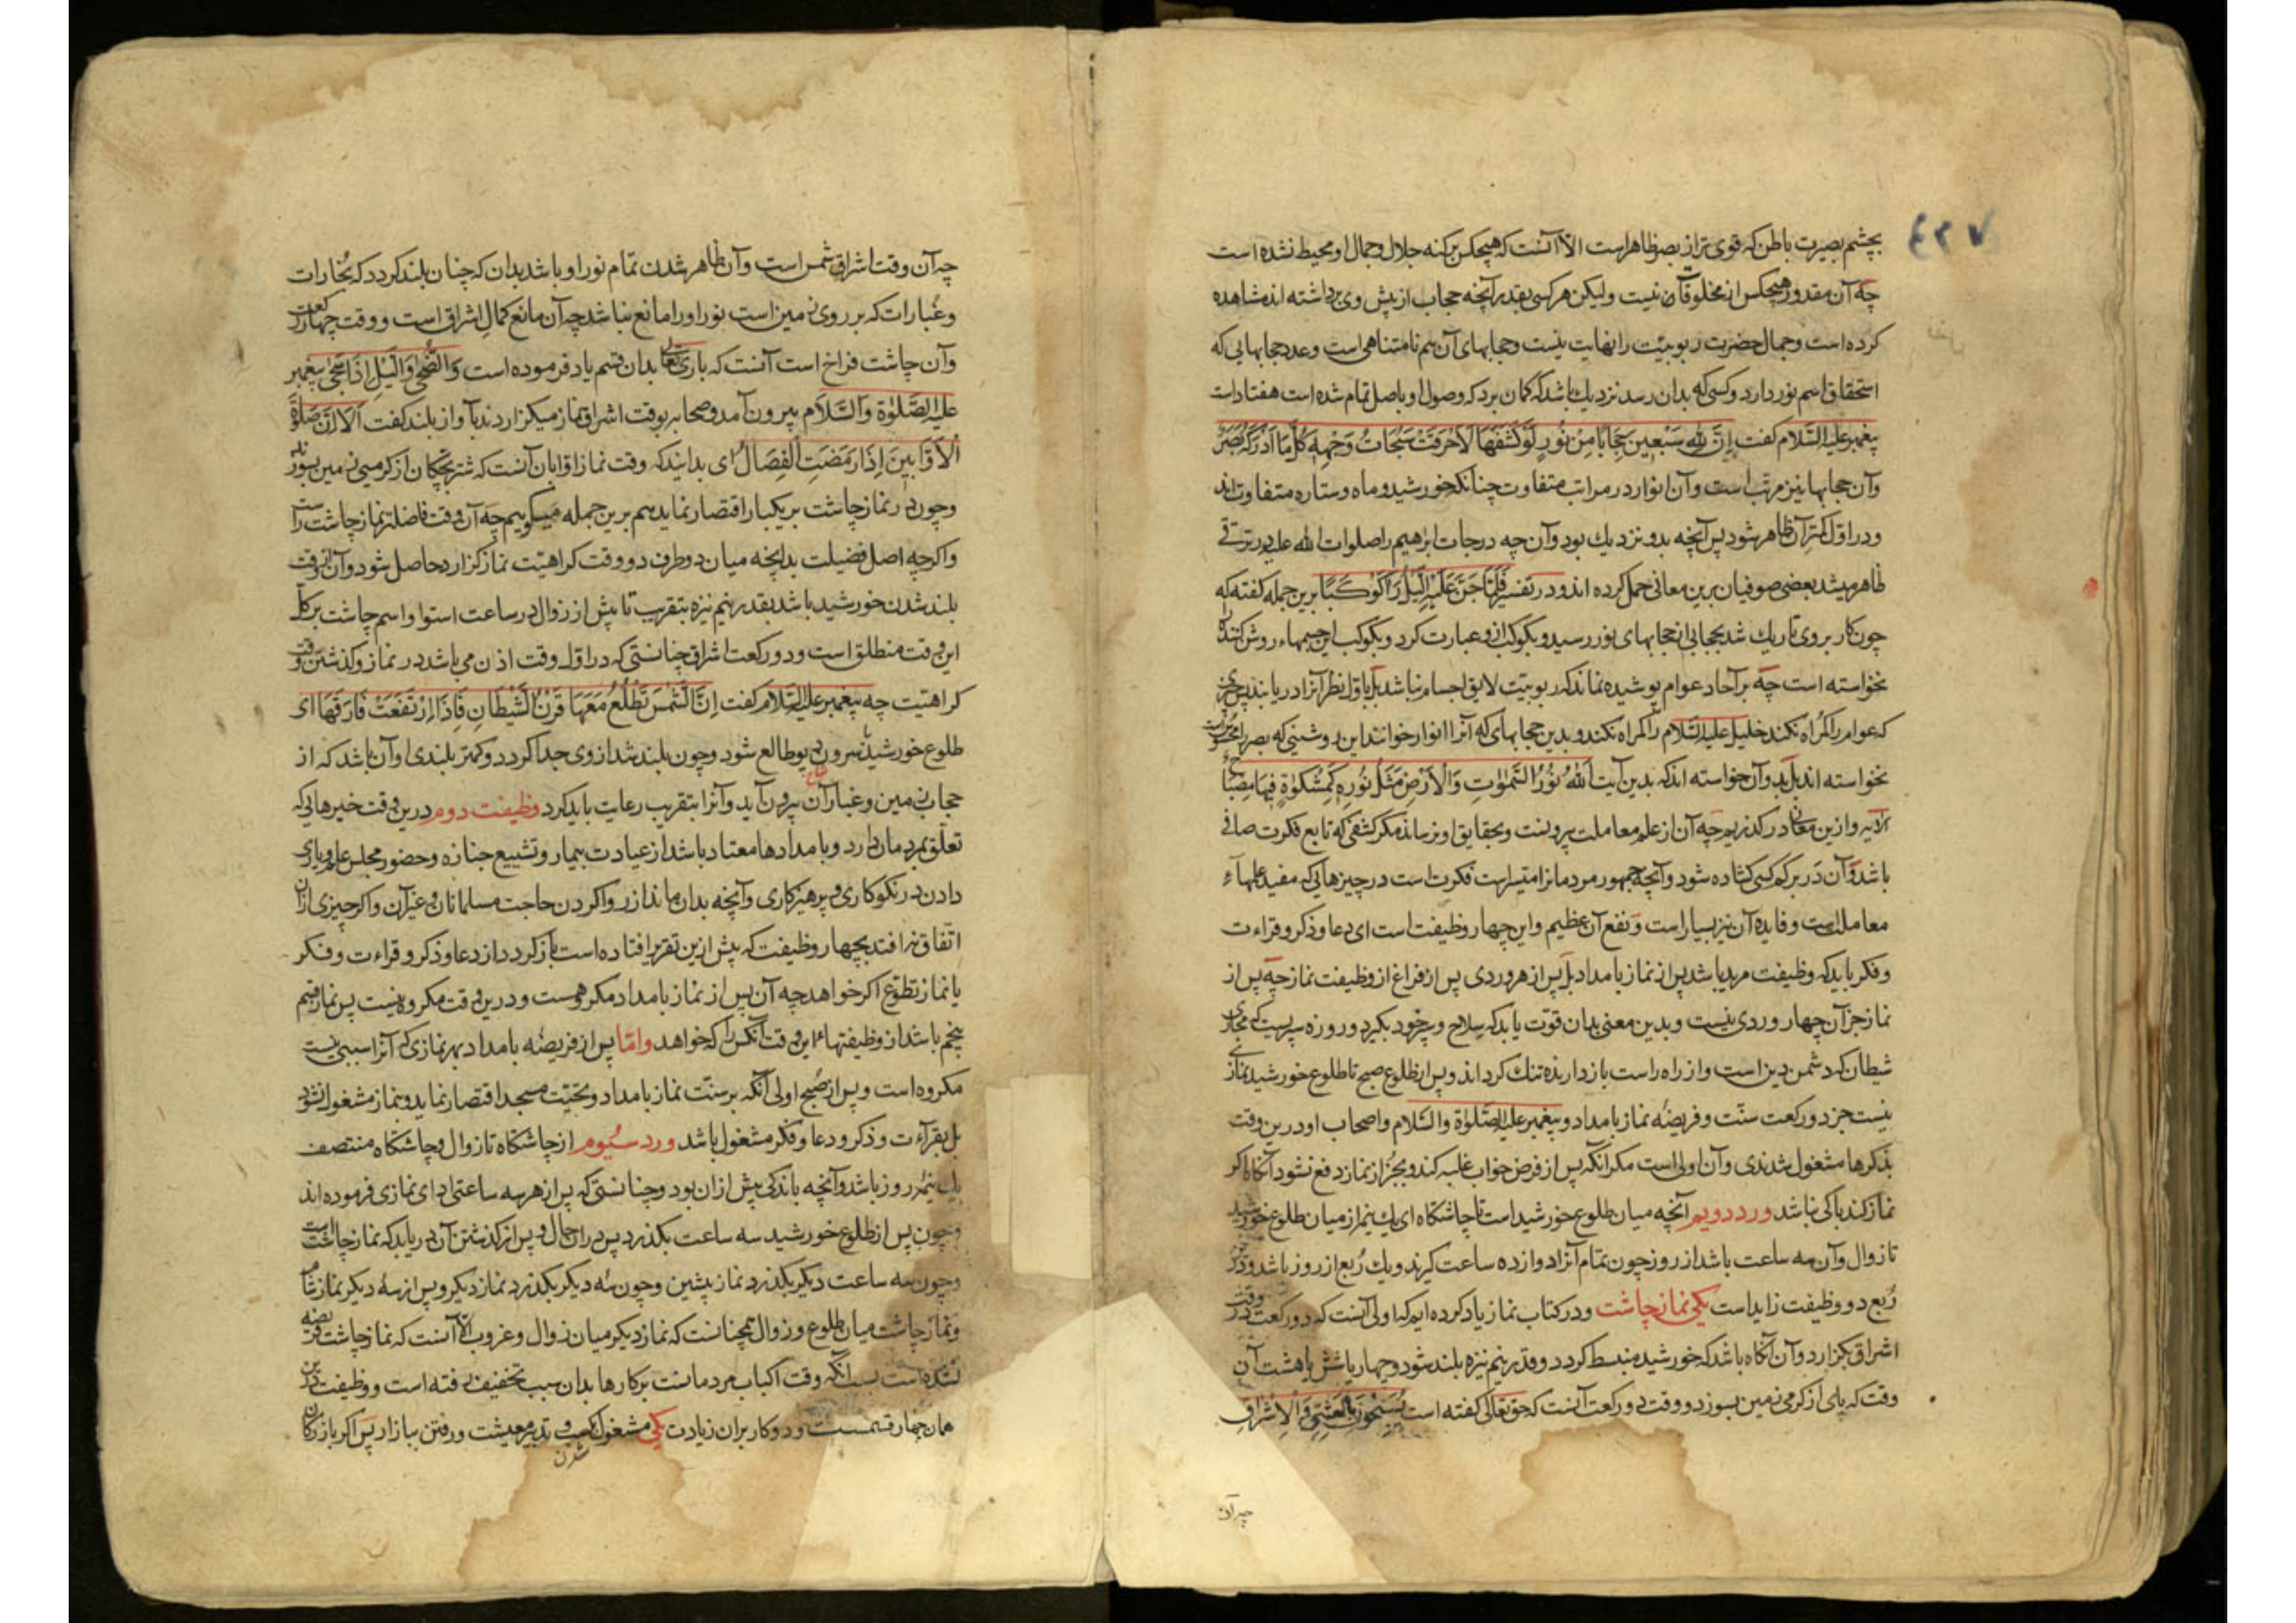 ٤٣٧
بچشم بصیرت باطن که قوی تر از بصر ظاهر است الا آنست که هیچکس بر کنه جلال و جمال او محیط نشده است
چه آن مقدور هیچکس از مخلوقات نیست ولیکن هر کسی بقدر آنچه حجاب از پیش وی برداشته اند مشاهده
کرده است و جمال حضرت ربوبیت را نهایت نیست و حجابهای آن هم نامتناهی است و عدد حجابهایی که
استحقاق اسم نور دارد و کسی که بدان رسد نزدیک باشد که گمان برد که وصول او باصل تمام شده است هفتاد است
پیغمبر علیه السلام گفت اِنَّ لِلّهِ سَبْعِینَ حِجَابًا مِنْ نُورٍ لَوْ کَشَفَهَا لَاَحْرَقَتْ سُبُحَاتُ وَجْهِهِ کُلَّ مَا اَدْرَکَهُ بَصَرُ
و آن حجابها نیز مرتب است و آن انوار در مراتب متفاوت چنانکه خورشید و ماه و ستاره متفاوت اند
و در اول کمتر آن ظاهر شود پس آنچه بدو نزدیک بود و آن چه درجات ابرهیم را صلوات الله علیه در ترقی
ظاهر میشد بعضی صوفیان برین معانی حمل کرده اند و در تفسیر فَلَمَّا جَنَّ عَلَیْهِ اللَّیْلُ رَآ کَوْکَبًا برین جمله گفته که
چون کار بر وی تاریک شد بحجابی از حجابهای نور رسید و بکوکب ازو عبارت کرد و بکوکب این جسمهاء روشن کننده را
نخواسته است چه بر آحاد عوام پوشیده نماند که ربوبیت لایق اجسام نباشد بل باول نظر آنرا دریابند پس چیزی
که عوام را گمراه نکند خلیل علیه السلام را گمراه نکند و بدین حجابهای که آنرا انوار خوانند این روشنیی که بصر را محسوس است
نخواسته اند بل بدو آن خواسته اند که بدین آیت اَللّهُ نُورُ السَّمٰوَاتِ وَالْاَرْضِ مَثَلُ نُورِهِ کَمِشْکٰوةٍ فِیهَا مِصْبَاحٌ
الآیه و ازین معانی در گذریم چه آن از علم معاملت بیرونست و بحقایق او نرساند مگر کشفی که تابع فکرت صافی
باشد و آن در بر کم کسی گشاده شود و آنچه جمهور مردمان را متیسر است فکرت است در چیزهایی که مفید علمهاء
معاملت است و فایده آن نیز بسیار است و نفع آن عظیم و این چهار وظیفت است ای دعا و ذکر و قراءت
و فکر باید که وظیفت مرید باشد پس از نماز بامداد بل پس از هر وردی پس از فراغ از وظیفت نماز چه پس از
نماز جز آن چهار وردی نیست و بدین معنی بدان قوت یابد که سلاح و سپر خود بگیرد و روزه سپریست که مجاری
شیطان که دشمن دین است و از راه راست باز دارنده تنک گرداند و پس از طلوع صبح تا طلوع خورشید نمازی
نیست جز دو رکعت سنت و فریضه نماز بامداد و پیغمبر علیه الصلوة والسلام و اصحاب او درین وقت
بذکرها مشغول شدندی و آن اولی است مگر آنکه پس از فرض خواب غلبه کند و بجز از نماز دفع نشود آنگاه اگر
نماز کند باکی نباشد ورد دویم آنچه میان طلوع خورشید است تا چاشتگاه ای یک نیمه از میان طلوع خورشید
تا زوال و آن سه ساعت باشد از روز چون تمام آنرا دوازده ساعت گیرند و یک ربع از روز باشد و درین
ربع دو وظیفت زاید است یکی نماز چاشت و در کتاب نماز یاد کرده ایم که اولی آنست که دو رکعت در وقت
اشراق بگزارد و آن آنگاه باشد که خورشید منبسط گردد و قدر نیم نیزه بلند شود و چهار یا شش یا هشت آن
وقت که پای از گرمی زمین بسوزد و وقت دو رکعت آنست که حق تعالی گفته است یُسَبِّحْنَ بِالْعَشِیِّ وَالْاِشْرَاقِ
چه آن
چه آن وقت اشراق شمس است و آن ظاهر شدن تمام نور او باشد بدان که چنان بلند گردد که بخارات
و غبارات که بر روی زمین است نور او را مانع نباشد چه آن مانع کمال اشراق است و وقت چهار رکعت
و آن چاشت فراخ است آنست که باری تعالی بدان قسم یاد فرموده است وَالضُّحٰی وَاللَّیْلِ اِذَا سَجٰی پیغمبر
علیه الصلوة والسلام بیرون آمد و صحابه بوقت اشراق نماز میگزاردند بآواز بلند گفت اَلَا اِنَّ صَلٰوةَ
الْاَوَّابِینَ اِذَا رَمَضَتِ الْفِصَالُ ای بدانید که وقت نماز اوابان آنست که شتر بچگان از گرمی زمین بسوزند
و چون در نماز چاشت بر یکبار اقتصار نماید هم برین جمله میگوییم چه آن وقت فاضلتر نماز چاشت راست
و اگرچه اصل فضیلت بدانچه میان دو طرف دو وقت کراهیت نماز گزارد حاصل شود و آن از وقت
بلند شدن خورشید باشد بقدر نیم نیزه بتقریب تا پیش از زوال در ساعت استوا و اسم چاشت بر کل
این وقت منطلق است و دو رکعت اشراق چنانستی که در اول وقت اذن می باشد در نماز و گذشتن وقت
کراهیت چه پیغمبر علیه السلام گفت اِنَّ الشَّمْسَ تَطْلُعُ مَعَهَا قَرْنُ الشَّیْطَانِ فَاِذَا ارْتَفَعَتْ فَارَقَهَا ای
طلوع خورشید با سرون دیو طالع شود و چون بلند شد از وی جدا گردد و کمتر بلندی او آن باشد که از
حجاب زمین و غبار آن بیرون آید و آنرا بتقریب رعایت باید کرد وظیفت دوم درین وقت خیرهایی که
تعلق بمردمان دارد و بامدادها معتاد باشد از عیادت بیمار و تشییع جنازه و حضور مجلس علم و یاری
دادن در نکوکاری و پرهیزکاری و آنچه بدان ماند از روا کردن حاجت مسلمانان و غیر آن و اگر چیزی از آن
اتفاق نیفتد بچهار وظیفت که پیش ازین تقریر افتاده است باز گردد از دعا و ذکر و قراءت و فکر
یا نماز تطوع اگر خواهد چه آن پس از نماز بامداد مکروهست و درین وقت مکروه نیست پس نماز قسم
پنجم باشد از وظیفتهاء این وقت آنکس را که خواهد و اما پس از فریضه بامداد بهر نمازی که آنرا سببی نیست
مکروه است و پس از صبح اولی آنکه بر سنت نماز بامداد و تحیت مسجد اقتصار نماید و بنماز مشغول نشود
بل بقراءت و ذکر و دعا و فکر مشغول باشد ورد سیوم از چاشتگاه تا زوال و چاشتگاه منتصف
یک نیمه روز باشد و آنچه باندکی پیش از آن بود و چنانستی که پس از هر سه ساعتی ادای نمازی فرموده اند
و چون پس از طلوع خورشید سه ساعت بگذرد پس در آن حال و پس از گذشتن آن دریابد که نماز چاشت است
و چون سه ساعت دیگر بگذرد نماز پیشین و چون سه دیگر بگذرد نماز دیگر و پس از سه دیگر نماز شام
و نماز چاشت میان طلوع و زوال همچنانست که نماز دیگر میان زوال و غروب الا آنست که نماز چاشت فریضه
نشده است بسبب آنکه وقت اکباب مردمانست بر کارها بدان سبب تخفیف رفته است و وظیفت درین
همان چهار قسمست و دو کار بران زیادت یکی مشغول شدن بکسب و تدبیر معیشت و رفتن ببازار پس اگر بازرگان